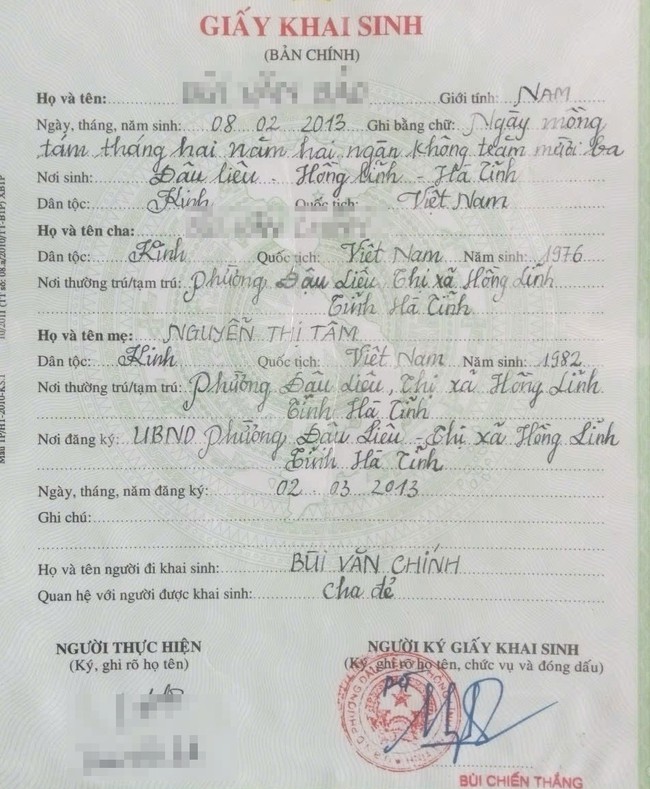 GIẤY KHAI SINH
(BẢN CHÍNH)
Họ và tên: Giới tính: NAM
Ngày, tháng, năm sinh: 08 02 2013 Ghi bằng chữ: Ngày mồng
tám tháng hai năm hai ngàn không trăm mười ba
Nơi sinh: Đậu liêu - Hồng Lĩnh - Hà Tĩnh
Dân tộc: Kinh Quốc tịch: Việt Nam
Họ và tên cha:
Dân tộc: Kinh Quốc tịch: Việt Nam Năm sinh: 1976
Nơi thường trú/tạm trú: Phường Đậu Liêu, Thị xã Hồng Lĩnh
Tỉnh Hà Tĩnh
Họ và tên mẹ: NGUYỄN THỊ TÂM
Dân tộc: Kinh Quốc tịch: Việt Nam Năm sinh: 1982
Nơi thường trú/tạm trú: Phường Đậu Liêu, Thị xã Hồng Lĩnh
Tỉnh Hà Tĩnh
Nơi đăng ký: UBND Phường Đậu Liêu - Thị xã Hồng Lĩnh
Tỉnh Hà Tĩnh
Ngày, tháng, năm đăng ký: 02 03 2013
Ghi chú:
Họ và tên người đi khai sinh: BÙI VĂN CHÍNH
Quan hệ với người được khai sinh: Cha đẻ
NGƯỜI THỰC HIỆN
(Ký, ghi rõ họ tên)
NGƯỜI KÝ GIẤY KHAI SINH
(Ký, ghi rõ họ tên, chức vụ và đóng dấu)
BÙI CHIẾN THẮNG